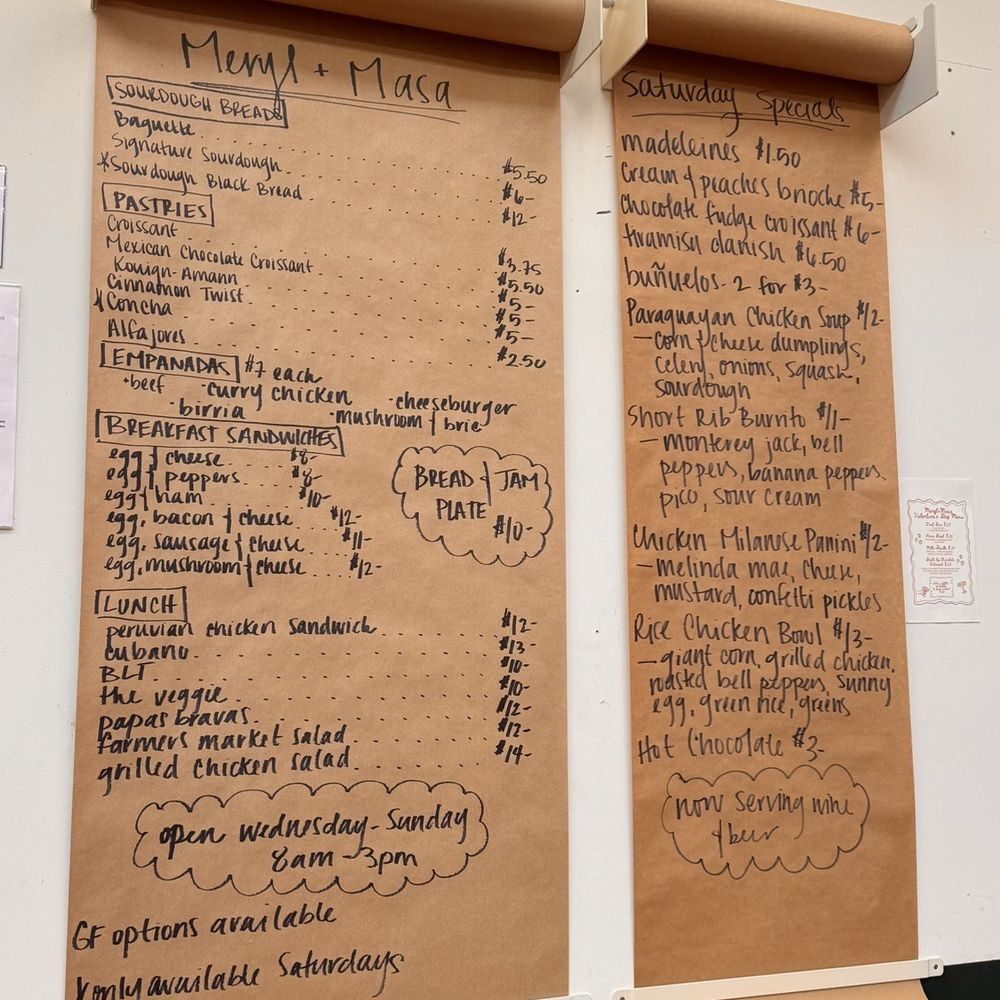 Meryl + Masa
SOURDOUGH BREADS
Baguette $5.50
Signature Sourdough $6-
*Sourdough Black Bread $12-
PASTRIES
Croissant $3.75
Mexican Chocolate Croissant $5.50
Kouign-Amann $5-
Cinnamon Twist $5-
*Concha $5-
Alfajores $2.50
EMPANADAS $7 each
•beef •curry chicken •cheeseburger
•birria •mushroom & brie
BREAKFAST SANDWICHES
egg & cheese $8-
egg & peppers $8-
egg & ham $10-
egg, bacon & cheese $12-
egg, sausage & cheese $11-
egg, mushroom & cheese $12-
BREAD & JAM
PLATE
$10-
LUNCH
peruvian chicken sandwich $12-
cubano $13-
BLT $10-
the veggie $10-
papas bravas $12-
farmers market salad $12-
grilled chicken salad $14-
open Wednesday-Sunday
8am-3pm
GF options available
*only available Saturdays
Saturday Specials
madeleines $1.50
Cream & peaches brioche $5-
chocolate fudge croissant $6-
tiramisu danish $6.50
buñuelos- 2 for $3-
Paraguayan Chicken Soup $12-
-corn & cheese dumplings,
celery, onions, squash,
sourdough
Short Rib Burrito $11-
-monterey jack, bell
peppers, banana peppers,
pico, sour cream
Chicken Milanese Panini $12-
-melinda mae, cheese,
mustard, confetti pickles
Rice Chicken Bowl $13-
-giant corn, grilled chicken,
roasted bell peppers, sunny
egg, green rice, greens
Hot Chocolate $3-
now serving wine
& beer